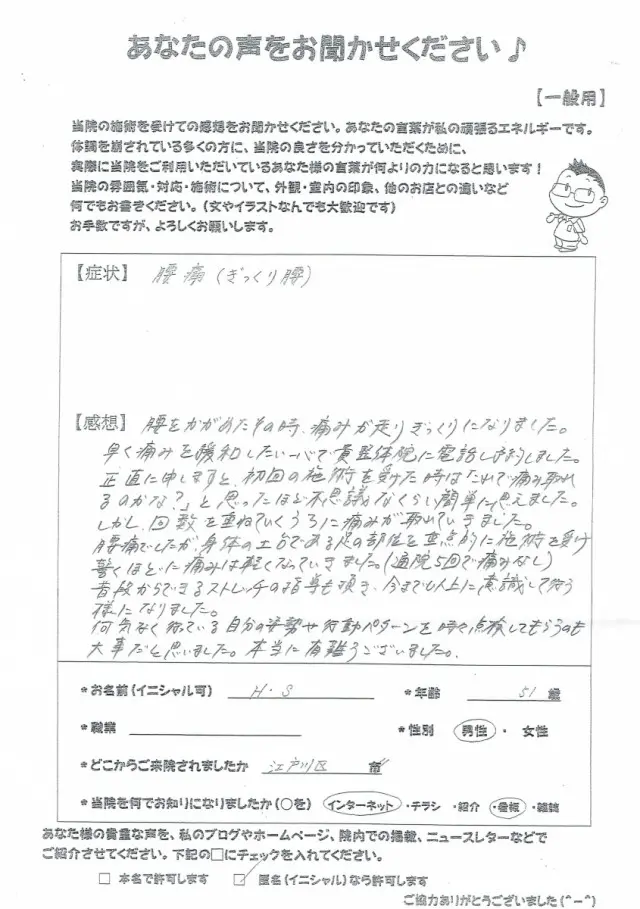 あなたの声をお聞かせください♪
【一般用】
当院の施術を受けての感想をお聞かせください。あなたの言葉が私の頑張るエネルギーです。
体調を崩されている多くの方に、当院の良さを分かっていただくために、
実際に当院をご利用いただいているあなた様の言葉が何よりの力になると思います!
当院の雰囲気・対応・施術について、外観・室内の印象、他のお店との違いなど
何でもお書きください。(文やイラストなんでも大歓迎です)
お手数ですが、よろしくお願いします。
【症状】 腰痛(ぎっくり腰)
【感想】 腰をかがめたその時、痛みが走りぎっくりになりました。
早く痛みを緩和したい一心で貴整体院に電話し予約しました。
正直に申しますと、初回の施術を受けた時は「これで痛み取れ
るのかな?」と思ったほど不思議なくらい簡単に思えました。
しかし、回数を重ねていくうちに痛みが取れていきました。
腰痛でしたが、身体の土台である足の部位を重点的に施術を受け
驚くほどに痛みは軽くなっていきました。(通院5回で痛みなし)
普段からできるストレッチの指導も頂き、今まで以上に意識して行う
様になりました。
何気なく行っている自分の姿勢や行動パターンを時々点検してもらうのも
大事だと思いました。本当に有難うございました。
*お名前(イニシャル可) H・S *年齢 51 歳
*職業 *性別 男性 ・ 女性
*どこからご来院されましたか 江戸川区 市
*当院を何でお知りになりましたか(○を) インターネット ・チラシ ・紹介 ・看板 ・雑誌
あなた様の貴重な声を、私のブログやホームページ、院内での掲載、ニュースレターなどで
ご紹介させてください。下記の□にチェックを入れてください。
□ 本名で許可します ☑ 匿名(イニシャル)なら許可します
ご協力ありがとうございました(^-^)